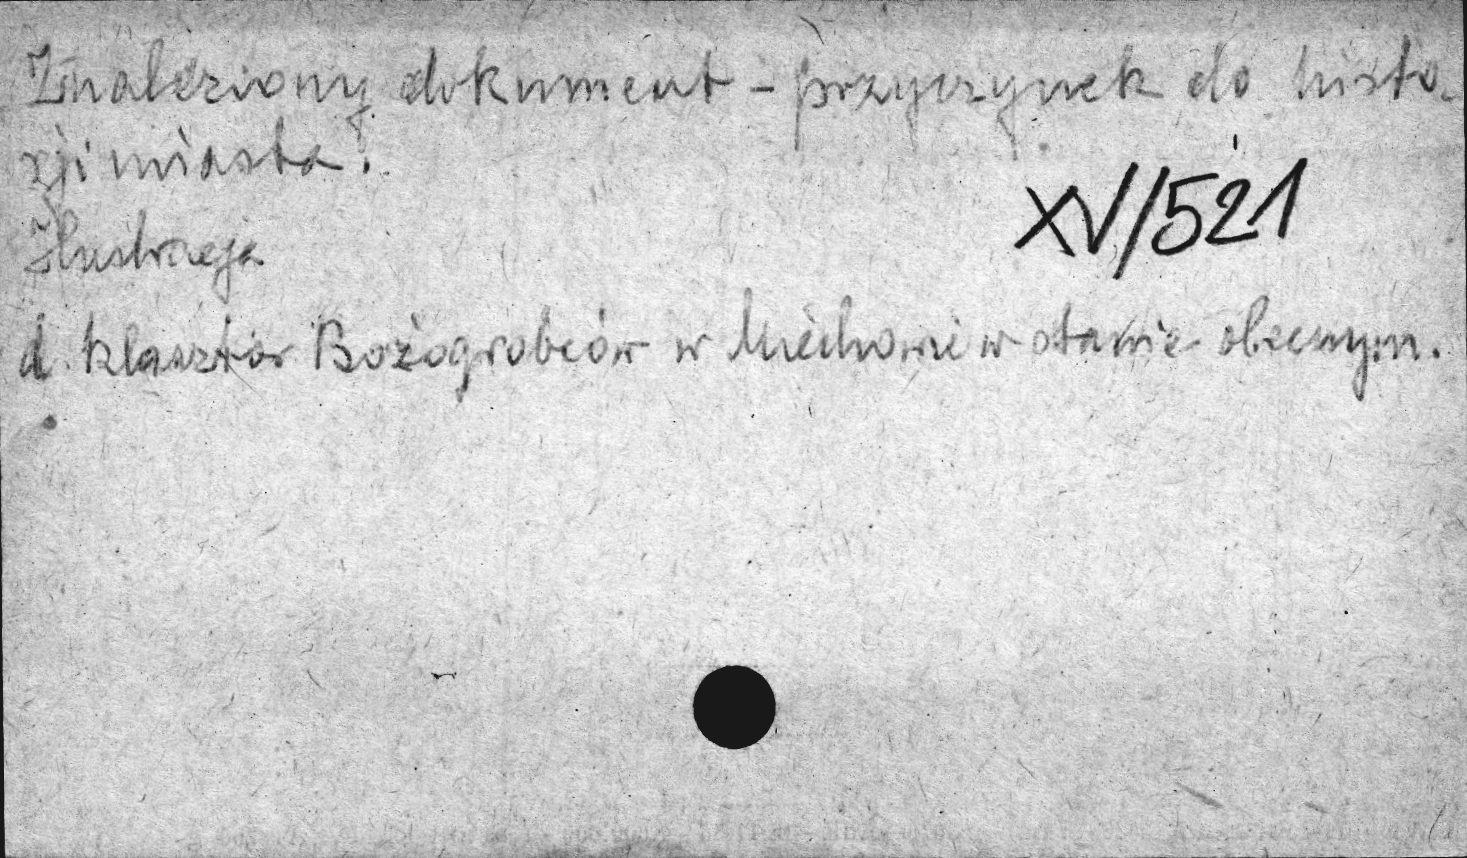 Znaleziony dokument - przyczynek do histo-
rji miasta.
XV/521
Ilustracja
d. klasztor Bożogrobców w Miechowie w stanie obecnym.